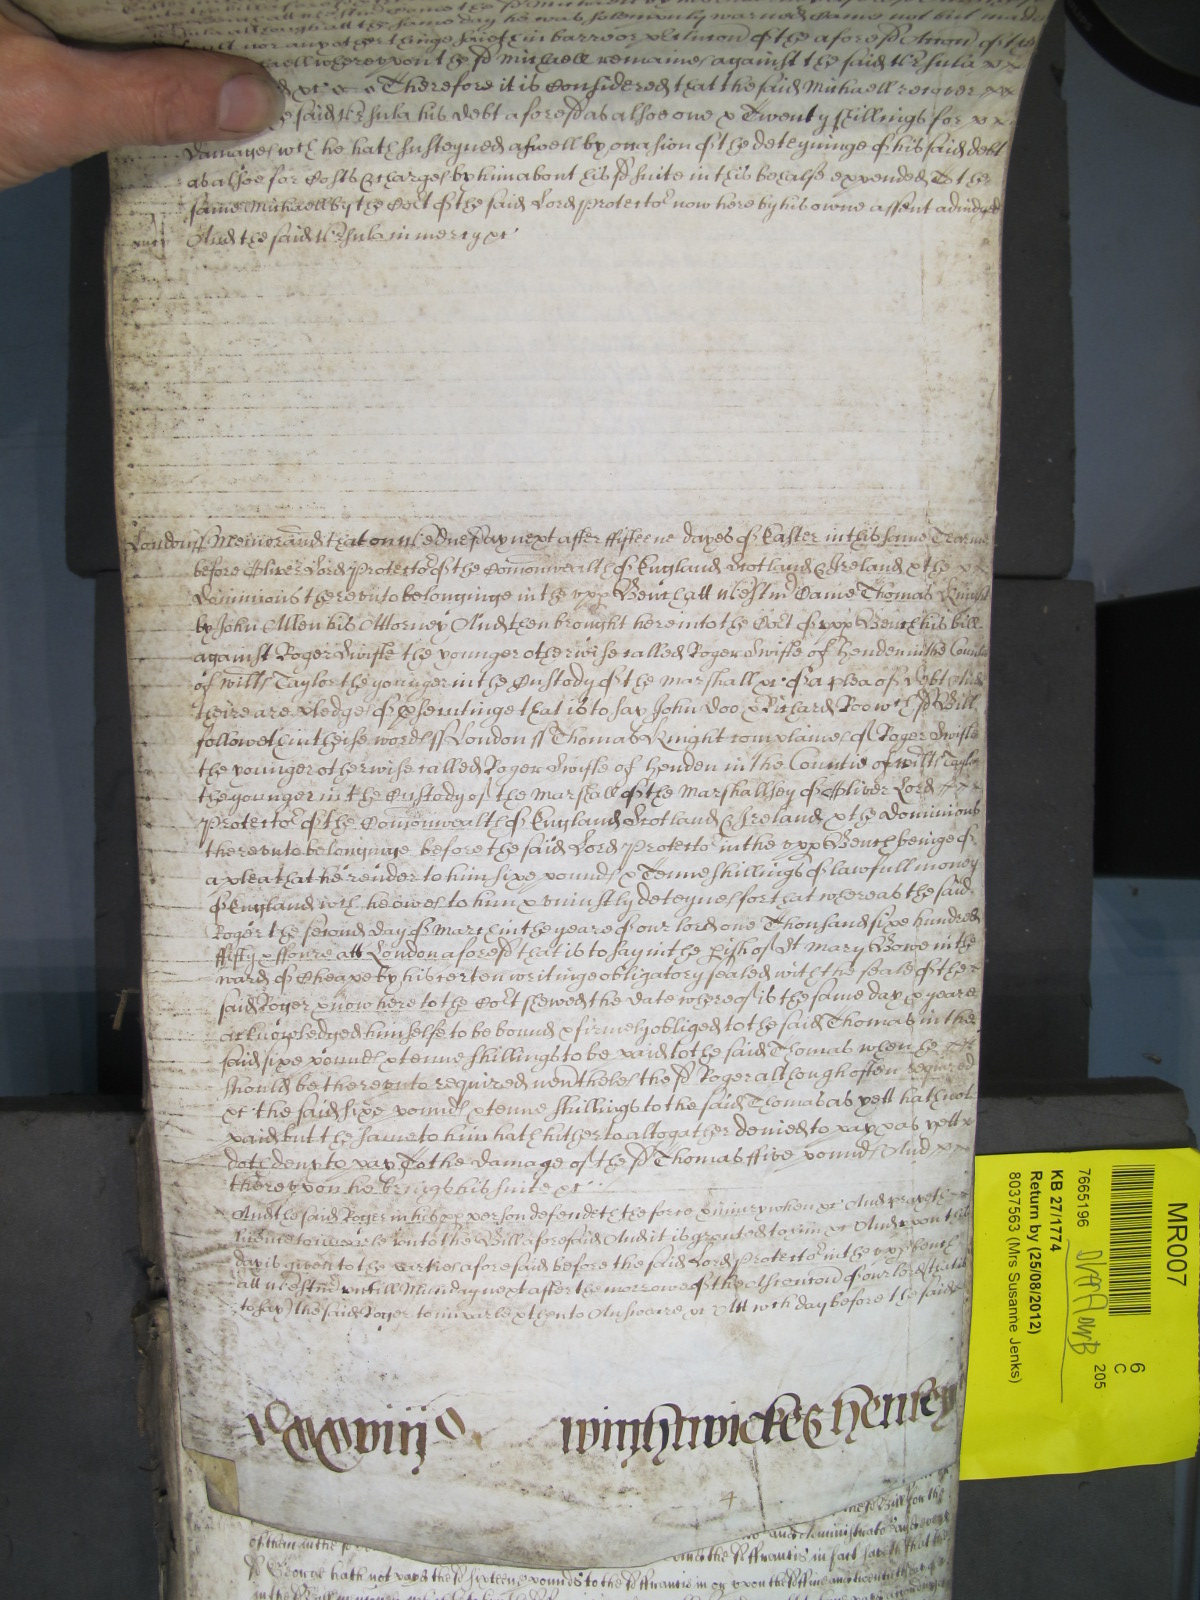 the same day he was solemnly warned Came not but made
nor any other thinge saith in barr or
whereupon the sd Michaell remaines against the said Ursula
Therefore it is Considered that the said Michaell recover
said Ursula his debt aforesd as alsoe one & Twenty shillings for
damages wch he hath susteyned aswell by occasion of the deteyninge of his said debt
as alsoe for Costs & Charges by him about his sd suite in this behalfe expended To the
same Michaell by the Cort of the said Lord Protector now here by his owne assent adiudged
And the said Ursula in mercy &c
London ss Memorand that on Wednesday next after fifteene dayes of Easter in this same Tearme
before Oliver Lord Protector of the Comonwealth of England Scotland & Ireland & the
Dominions thereunto belonginge in the upp Bench att Westmr Came Thomas Knight
by John Allen his Attorney And then brought here into the Cort of upp Bench his bill
against Roger Swifte the younger otherwise called Roger Swifte of Henden in the Countie
of Wilts Taylor the younger in the Custody of the Marshall &c of a plea of Debt And
there are pledges of prosecutinge that is to say John Doo & Richard Roo wch sd Bill
followeth in theise wordes ss London ss Thomas Knight complaines of Roger Swifte
the younger otherwise called Roger Swifte of Henden in the Countie of Wilts Taylor
the younger in the Custody of the Marshall of the Marshallsey of Oliver Lord
Protector of the Comonwealth of England Scotland & Ireland & the Dominions
thereunto belonginge before the said Lord Protector in the upp Bench beinge of
a plea that he render to him sixe pounds & Tenne shillings of lawfull money
of England wch he owes to him & uniustly deteynes for that whereas the said
Roger the second day of March in the yeare of our lord one Thousand sixe hundred
fifty & foure att London aforesd that is to say in the pish of St Mary Bowe in the
ward of Cheape by his certen writinge obligatory sealed with the seale of the
said Roger & now here to the Cort shewed the date whereof is the same day & yeare
acknowledged himselfe to be bound & firmely obliged to the said Thomas in the
said sixe pounds & tenne shillings to be paid to the said Thomas when he
should be thereunto required neverthelesse the sd Roger although often required
&c the said sixe pounds & tenne shillings to the said Thomas as yett hath not
paid but the same to him hath hitherto altogather denied to pay & as yett
doth deny to pay To the damage of the sd Thomas ffive pounds And
thereupon he brings his suite &c
And the said Roger in his pp person defendeth the force & iniury when &c And prayeth
licence to imparle unto the Bill aforesaid And it is graunted to him &c And upon this
day is given to the parties aforesaid before the said Lord Protector in the upp bench
att Westmr untill Munday next after the morrowe of the Ascencon of our lord that is
to say the said Roger to imparle & then to Answeare &c Att wch day before the said
Wightwicke & Henley
4
Bill for the
of them in the
and the sd ffrancis in fact saith that the
sd George hath not payd the sd sixteene pounds to the sd ffrancis
MR007
6
C
205
7665196
KB 27/1774
Return by (25/08/2012)
8037563 (Mrs Susanne Jenks)